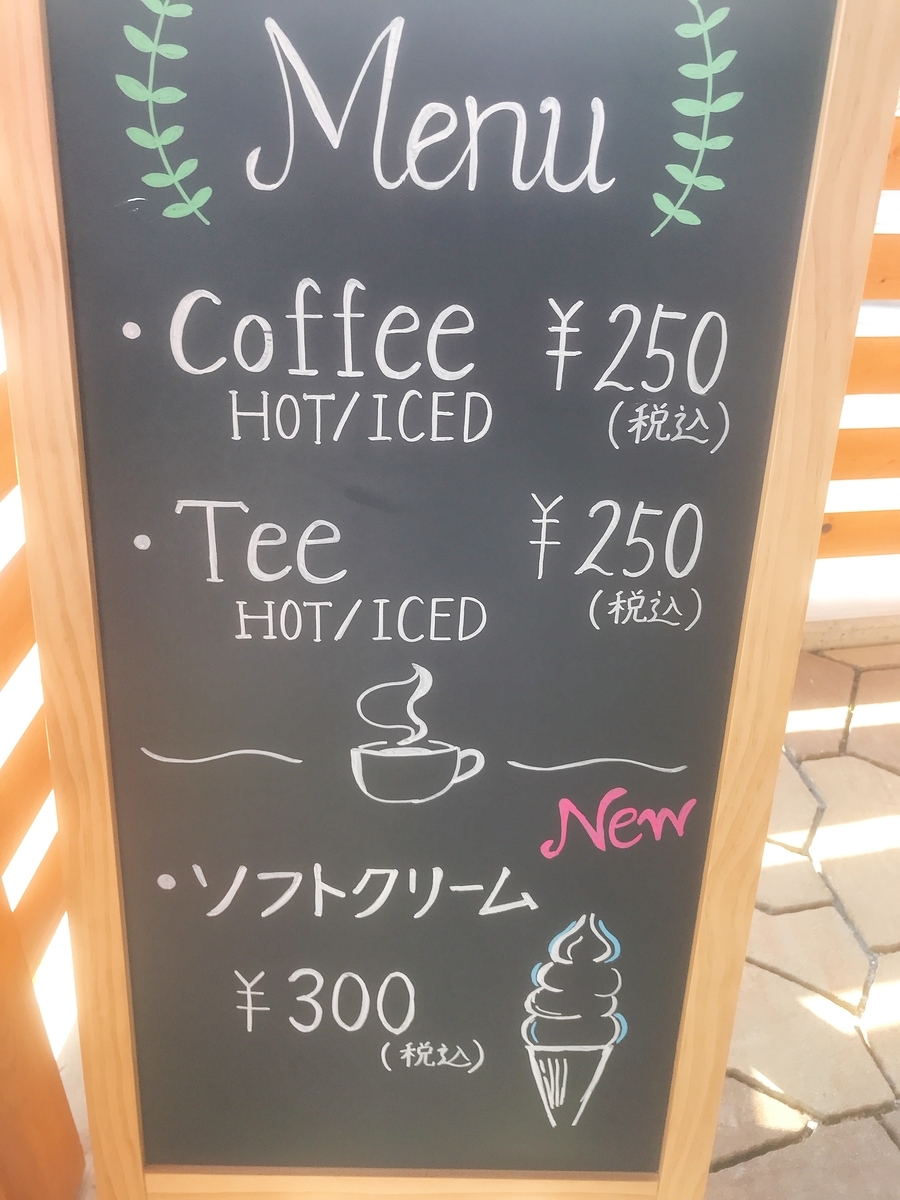 Menu
・Coffee ¥250
HOT/ICED (税込)
・Tee ¥250
HOT/ICED (税込)
New
・ソフトクリーム
¥300
(税込)